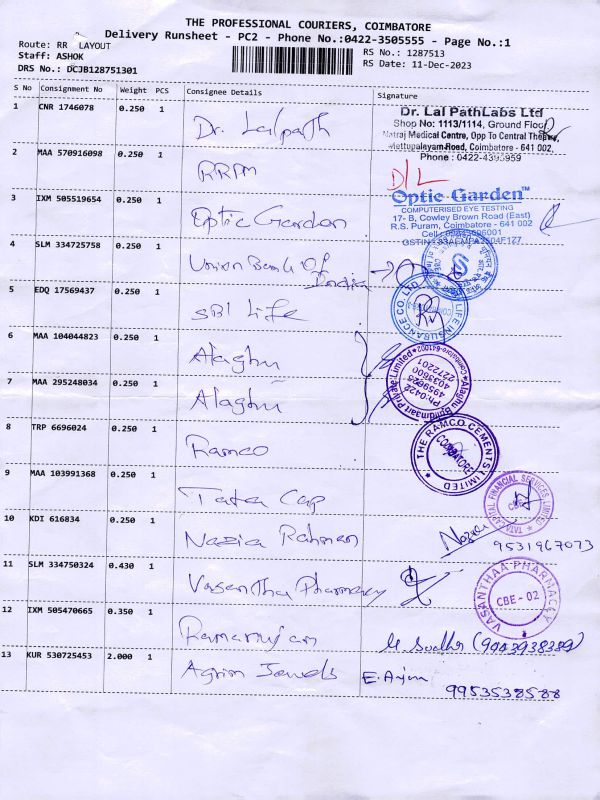 THE PROFESSIONAL COURIERS, COIMBATORE
Delivery Runsheet - PC2 - Phone No.:0422-3505555 - Page No.:1
Route: RR LAYOUT
RS No.: 1287513
Staff: ASHOK
RS Date: 11-Dec-2023
DRS No.: DCJB128751301
S No Consignment No Weight PCS Consignee Details Signature
1 CNR 1746078 0.250 1 Dr. Lalpath
Dr. Lal PathLabs Ltd
Shop No: 1113/1114, Ground Floor
Natraj Medical Centre, Opp To Central Theatre
Mettupalayam Road, Coimbatore - 641 002.
Phone : 0422-4393959
2 MAA 570916098 0.250 1 RRPM
D/L
3 IXM 505519654 0.250 1 Optic Garden
Optic Garden™
COMPUTERISED EYE TESTING
17- B, Cowley Brown Road (East)
R.S. Puram, Coimbatore - 641 002
4 SLM 334725758 0.250 1 Union Bank Of
India
5 EDQ 17569437 0.250 1 SBI Life
LIFE INSURANCE CO. LTD
6 MAA 104044823 0.250 1 Alaghu
7 MAA 295248034 0.250 1 Alaghu
Private Limited * Coimbatore-641002
Ph:0422
4959625
4033800
2272201
8 TRP 6696024 0.250 1 Ramco
THE RAMCO CEMENTS LIMITED
COIMBATORE
9 MAA 103991368 0.250 1 Tata Cap
TATA CAPITAL FINANCIAL SERVICES LIMITED
CBE
10 KDI 616834 0.250 1 Nazia Rahman
Nazia
9531967073
11 SLM 334750324 0.430 1 Vasantha Pharmacy
VASANTHAA PHARMACY
CBE - 02
12 IXM 505470665 0.350 1 Ramanujan
M. Sudha (9943938389)
13 KUR 530725453 2.000 1 Agrim Jewels
E. Arjun
9953538588